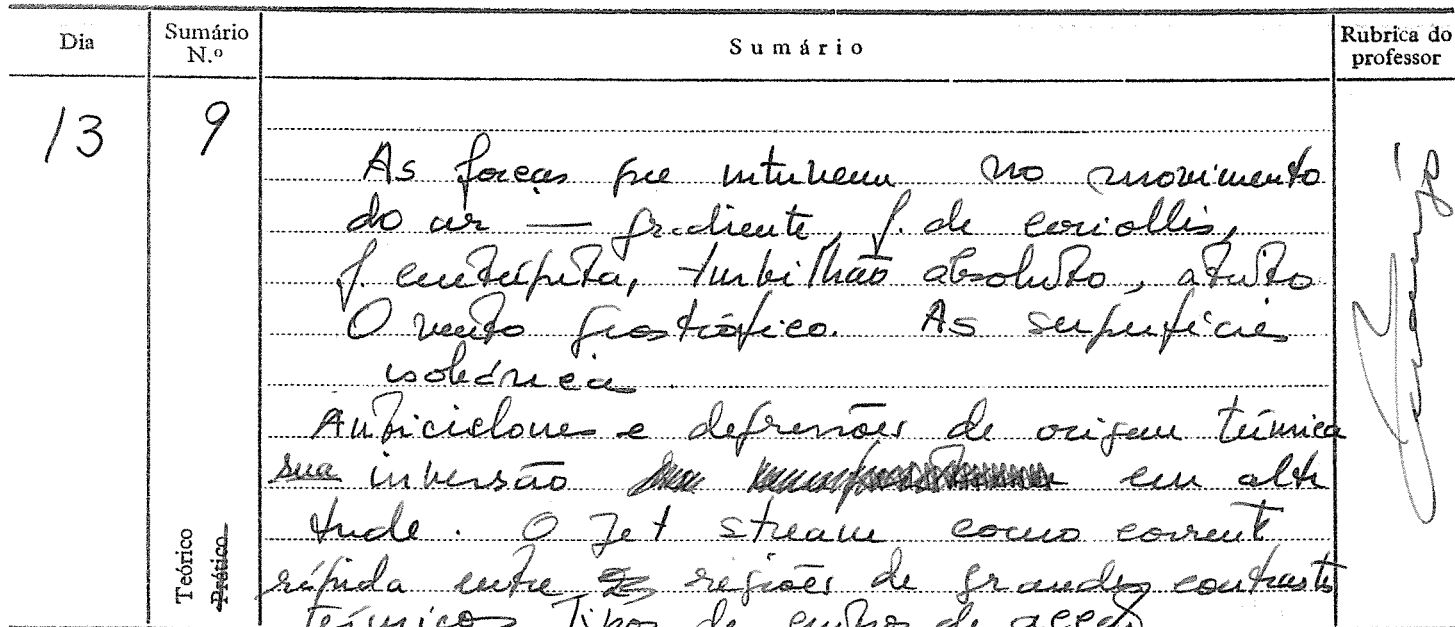 Dia Sumário N.º Sumário Rubrica do professor
13 9
As forças que intervem no movimento
do ar — gradiente, f. de coriollis,
f. centrípeta, turbilhão absoluto, atrito
O vento geostrófico. As superfícies
isobárica.
Anticiclones e depressões de origem térmica
sua inversão em alti
tude. O Jet stream como corrente
rápida entre regiões de grandes contrastes
térmicos Tipos de centros de acção
Teórico
Prático